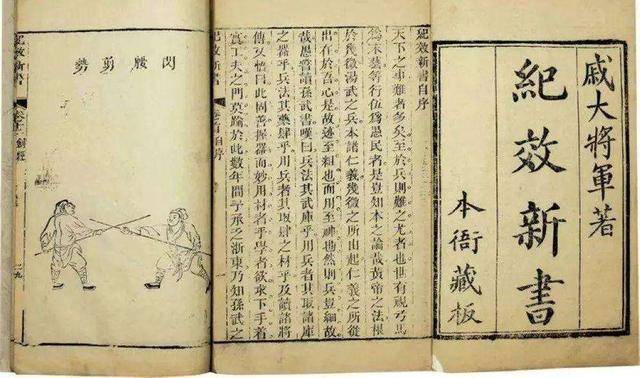 戚大將軍著
紀效新書
本衙藏板
紀效新書自序
天下之事難者多矣至於兵則難之尤者也世有視弓馬
爲末藝等行伍爲愚民者是豈知本之論哉黃帝之法根
於幾微湯武之兵本諸仁義幾微之所由起仁義之所從
出在於吾心是故迹至粗也而用至神也然則兵豈細故
哉愚嘗讀孫武書嘆曰兵法其武庫乎用兵者其取諸庫
之器乎兵法其藥肆乎用兵者其取諸肆之材乎及讀諸將
傳又悟曰此固善握器而妙用材者乎學者欲求下手着
實工夫之門莫踰於此數年間予承乏浙東乃知孫武之
紀效新書
自序
一
閃腰剪勢
紀效新書